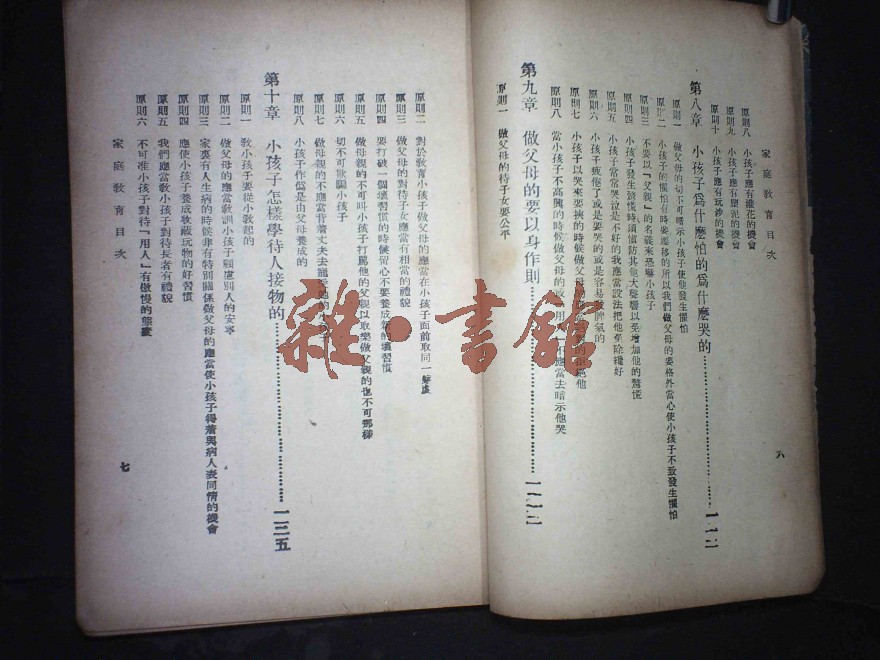 家庭教育目次
原則八 小孩子應有種花的機會
原則九 小孩子應有塑泥的機會
原則十 小孩子應有玩沙的機會
第八章 小孩子爲什麽怕的爲什麽哭的
原則一 做父母的切不可暗示小孩子使他發生懼怕
原則二 小孩子的懼怕有時要遷移的所以我們做父母的要格外當心使小孩子不致發生懼怕
原則三 不要以「父親」的名義來恐嚇小孩子
原則四 小孩子發生驚慌時須慎防其他大聲響以免增加他的驚慌
原則五 小孩子常常哭泣是不好的我應當設法把他免除纔好
原則六 小孩子疲倦了或是要哭的或是容易發脾氣的
原則七 小孩子以哭來要挾的時候做父母的
原則八 當小孩子不高興的時候做父母的或 不應當去暗示他哭
第九章 做父母的要以身作則
原則一 做父母的待子女要公平
六
原則二 對於教育小孩子做父母的應當在小孩子面前取同一態度
原則三 做父母的對待子女應當有相當的禮貌
原則四 要打破一個壞習慣的時候留心不要養成 的壞習慣
原則五 做母親的不可叫小孩子打罵他的父親以取樂做父親的也不可那樣
原則六 切不可欺騙小孩子
原則七 做母親的不應當背着丈夫去寵愛他的
原則八 小孩子作僞是由父母養成的
第十章 小孩子怎樣學待人接物的 一三五
原則一 教小孩子要從小教起的
原則二 做父母的應當教訓小孩子顧慮別人的安寧
原則三 家裏有人生病的時候非有特別關係做父母的應當使小孩子得着與病人表同情的機會
原則四 應使小孩子養成收藏玩物的好習慣
原則五 我們應當教小孩子對待長者有禮貌
原則六 不可准小孩子對待「用人」有傲慢的態度
家庭教育目次
七
雜·書館